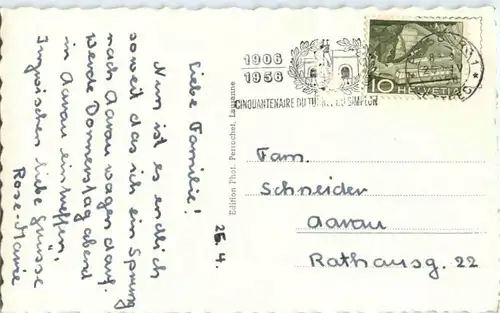 25.4.
Liebe Familie!
Nun ist es endlich
soweit das ich ein Sprung
nach Aarau wagen darf.
Werde Donnerstag abend
in Aarau eintreffen,
Inzwischen liebe Grüsse
Rose-Marie
Edition Phot. Perrochet, Lausanne
1906
1956
CINQUANTENAIRE DU TUNNEL DU SIMPLON
10 HELVETIA
Fam.
Schneider
Aarau
Rathausg. 22